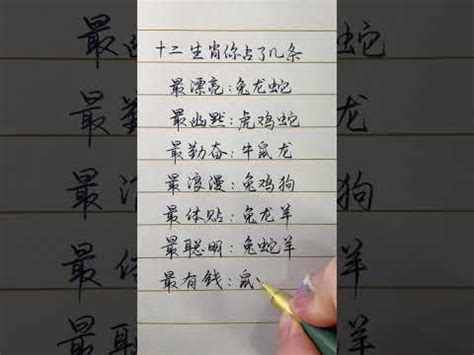 十二生肖你占了几条
最漂亮:兔龙蛇
最幽默:虎鸡蛇
最勤奋:牛鼠龙
最浪漫:兔鸡狗
最体贴:兔龙羊
最聪明:兔蛇羊
最有钱:鼠